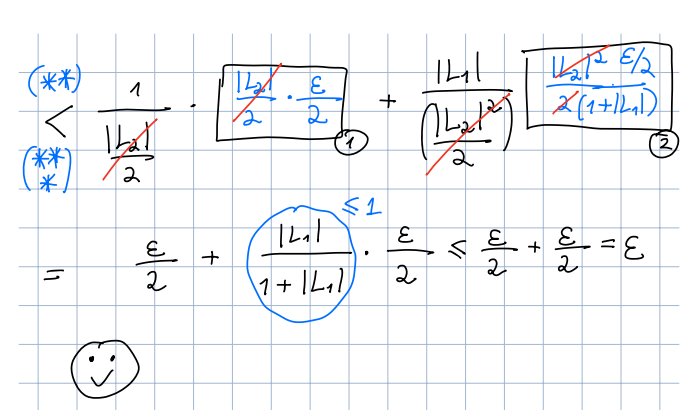 (**) < (***) 1 / (|L₂|/2) · |L₂|/2 · ε/2 ① + |L₁| / (|L₂|²/2) · |L₂|² ε/2 / 2(1+|L₁|) ②
= ε/2 + |L₁| / (1+|L₁|) ≤1 · ε/2 ≤ ε/2 + ε/2 = ε